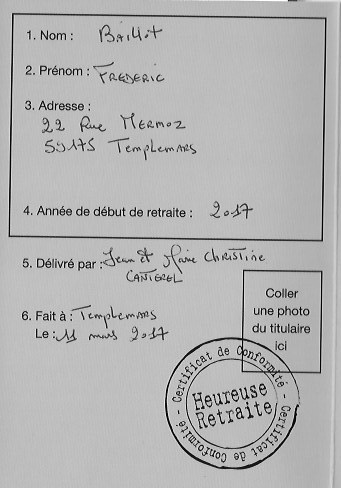 1. Nom : Baillot
2. Prénom : FREDERIC
3. Adresse :
22 Rue MERMOZ
59175 TempleMARS
4. Année de début de retraite : 2017
5. Délivré par : Jean & Marie CHRISTINE
CANTEREL
6. Fait à : TempleMARS
Le : 11 mars 2017
Coller
une photo
du titulaire
ici
Certificat de Conformité - Certificat de Conformité -
Heureuse
Retraite